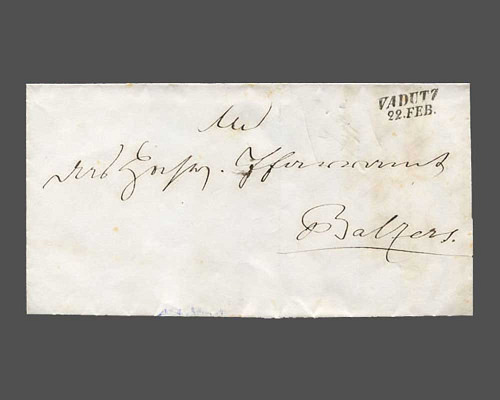 VADUTZ
22.FEB.
An
das Hochw. Pfarramt
Balzers.